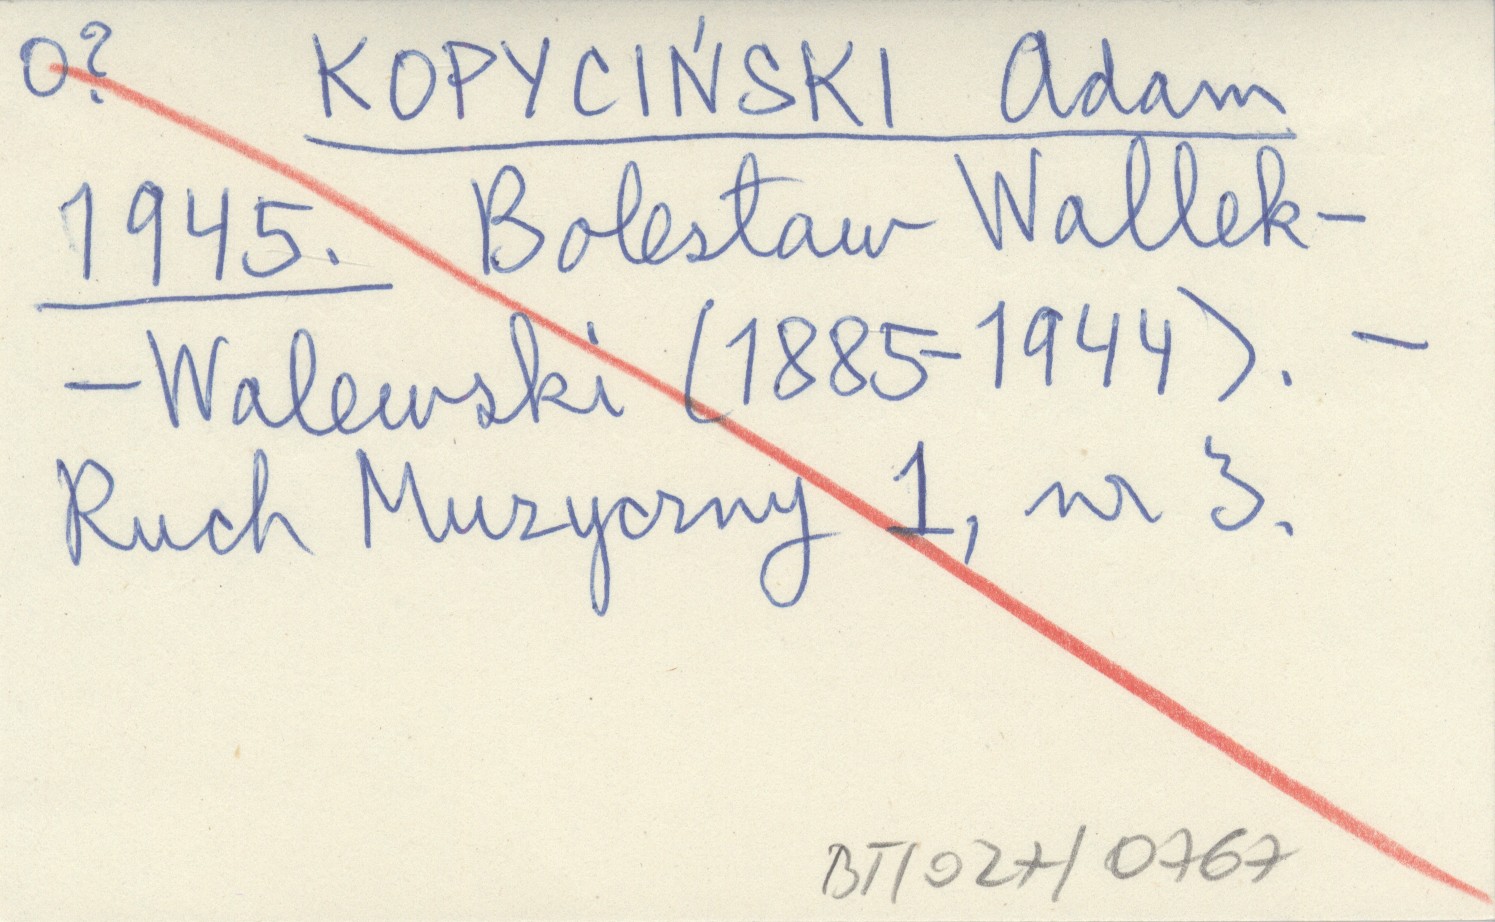 o? KOPYCIŃSKI Adam
1945. Bolesław Wallek-
-Walewski (1885-1944). -
Ruch Muzyczny 1, nr 3.
BT/027/0767